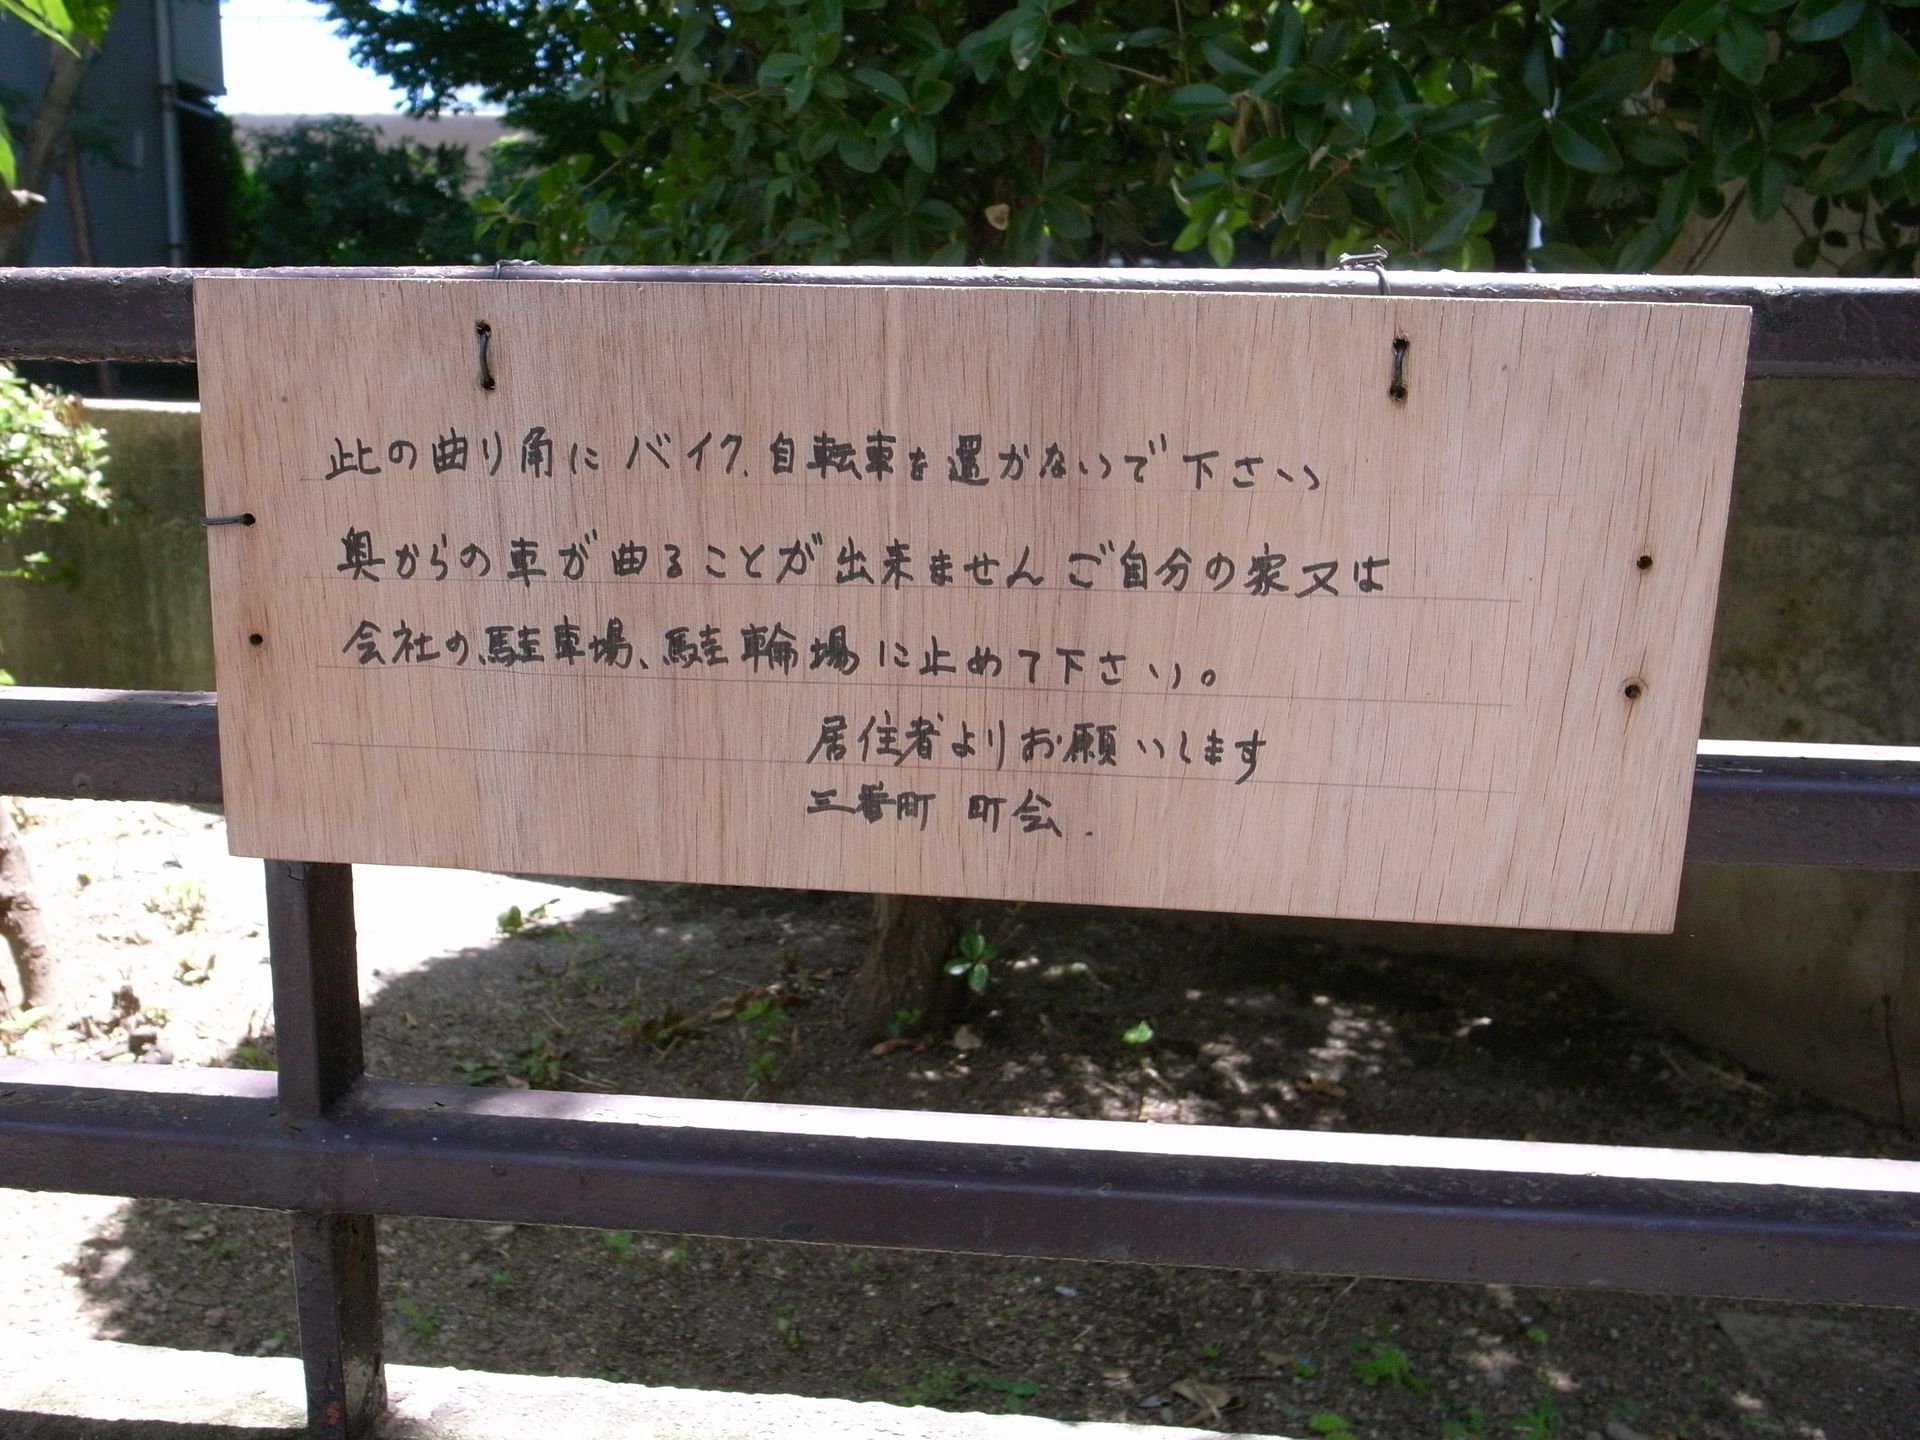 此の曲り角に バイク、自転車を置かないで下さい
奥からの車が曲ることが出来ません ご自分の家又は
会社の駐車場、駐輪場に止めて下さい。
居住者よりお願いします
三番町 町会.